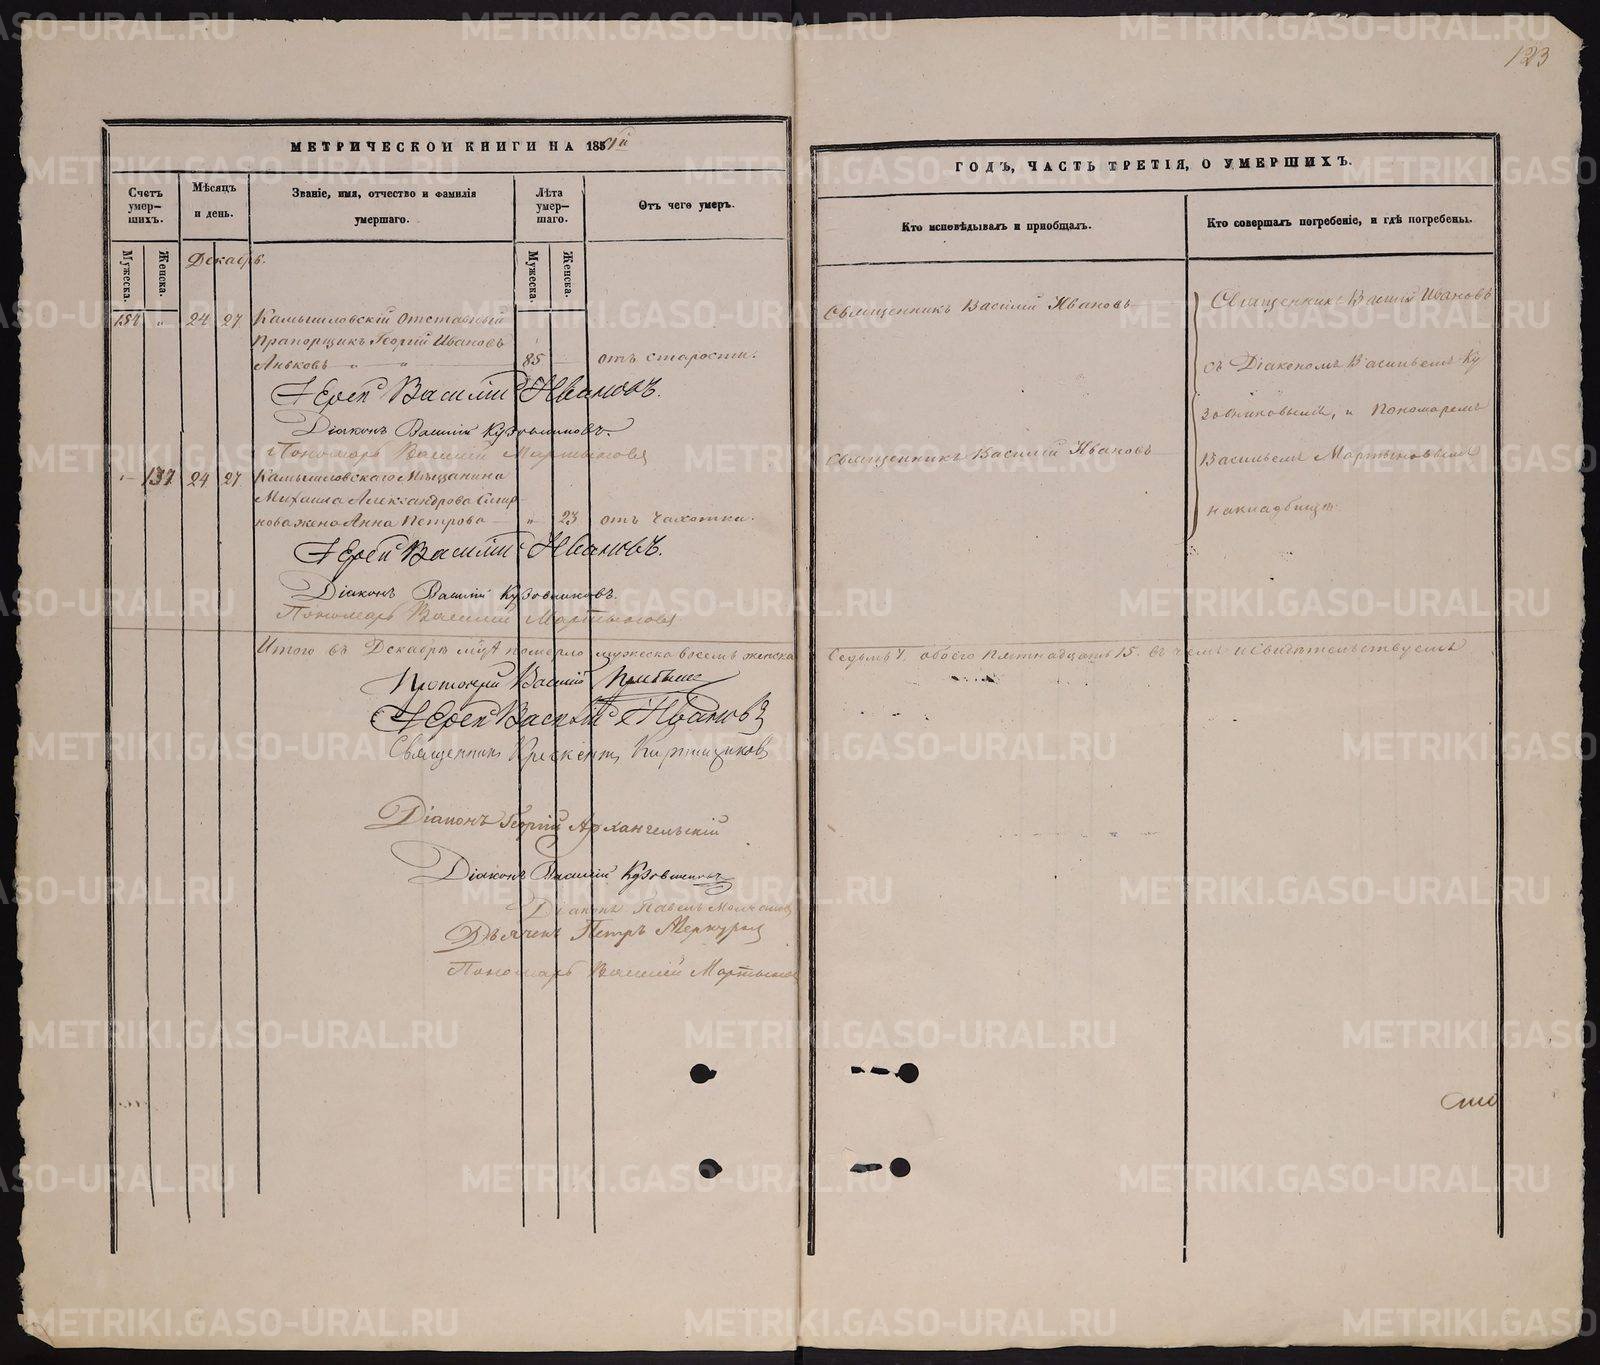 123
МЕТРИЧЕСКОЙ КНИГИ НА 185
ГОДЪ, ЧАСТЬ ТРЕТІЯ, О УМЕРШИХЪ.
Счетъ умер-шихъ.
Мѣсяцъ и день.
Званіе, имя, отчество и фамилія умершаго.
Лѣта умер-шаго.
Отъ чего умеръ.
Кто исповѣдывалъ и приобщалъ.
Кто совершалъ погребеніе, и гдѣ погребены.
Мужеска.
Женска.
Мужеска.
Женска.
Декабрь.
154 " 24 27 Камышловскій отставный
прапорщикъ Георгій Ивановъ
85 отъ старости.
Іерей Василій Ивановъ.
Діаконъ Василій Кузовниковъ.
Пономарь Василій Мартыновъ
Священникъ Василій Ивановъ
" 137 24 27 Камышловскаго Мѣщанина
Михаила Александрова Смир-
нова жена Анна Петрова " 23 отъ чахотки.
Іерей Василій Ивановъ.
Діаконъ Василій Кузовниковъ.
Пономарь Василій Мартыновъ
Священникъ Василій Ивановъ
Священникъ Василій Ивановъ
съ Діакономъ Васильемъ Ку
зовниковымъ, и Пономаремъ
Васильемъ Мартыновымъ
на кладбищѣ.
Итого въ Декабрѣ мцѣ померло мужеска восемь женска
седмь 7. обоего пятнадцать 15. въ чемъ и свидѣтельствуемъ
Протоіерей Василій
Іерей Василій Ивановъ
Священникъ Крискентъ
Діаконъ Георгій Архангельскій
Діаконъ Василій Кузовниковъ
Діаконъ Павелъ
Дьячекъ Петръ Меркурьевъ
Пономарь Василій Мартыновъ
METRIKI.GASO-URAL.RU